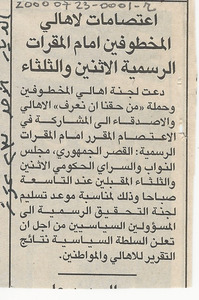 2000-07-23-0001-R
اعتصامات لاهالي
المخطوفين امام المقرات
الرسمية الاثنين والثلثاء
دعت لجنة اهالي المخطوفين
وحملة «من حقنا ان نعرف» الاهالي
والاصدقاء الى المشاركة في
الاعتصام المقرر امام المقرات
الرسمية: القصر الجمهوري، مجلس
النواب والسراي الحكومي الاثنين
والثلثاء المقبلين عند التاسعة
صباحا وذلك لمناسبة موعد تسليم
لجنة التحقيق الرسمية الى
المسؤولين السياسيين من اجل ان
تعلن السلطة السياسية نتائج
التقرير للاهالي والمواطنين.